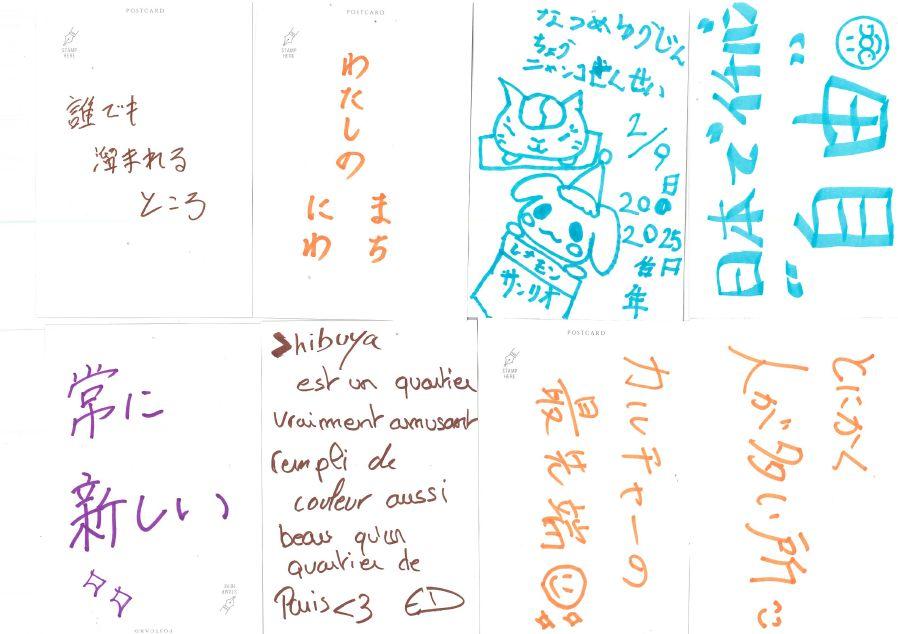 POSTCARD
STAMP HERE
誰でも
溜まれる
ところ
POSTCARD
STAMP HERE
わたしの
まち
にわ
なつめゆうじん
ちょう
ニャンコせんせい
2/9
2025
年
シナモン
サンリオ
日本で
常に
新しい
STAMP HERE
POSTCARD
Shibuya
est un quartier
vraiment amusant
rempli de
couleur aussi
beau qu'un
quartier de
Paris <3 ED
POSTCARD
STAMP HERE
カルチャーの
最先端
とにかく
人が多い所